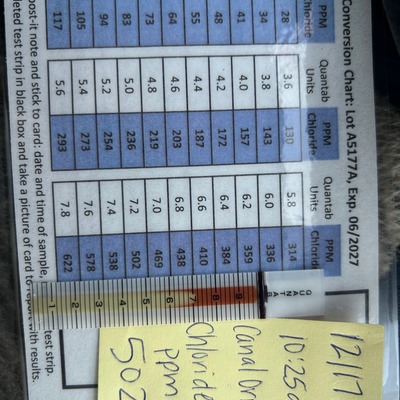 Conversion Chart: Lot A5177A, Exp. 06/2027
PPM Chloride Quantab Units PPM Chloride Quantab Units PPM Chloride
28 3.6 130 5.8 314
34 3.8 143 6.0 336
41 4.0 157 6.2 359
48 4.2 172 6.4 384
55 4.4 187 6.6 410
64 4.6 203 6.8 438
73 4.8 219 7.0 469
83 5.0 236 7.2 502
94 5.2 254 7.4 538
105 5.4 273 7.6 578
117 5.6 293 7.8 622
post-it note and stick to card: date and time of sample,
leted test strip in black box and take a picture of card to report with results.
test strip.
QUAN
TAB
9
8
7
6
5
4
3
2
1
12/17
10:25a
Canal Dr
Chloride
ppm
502